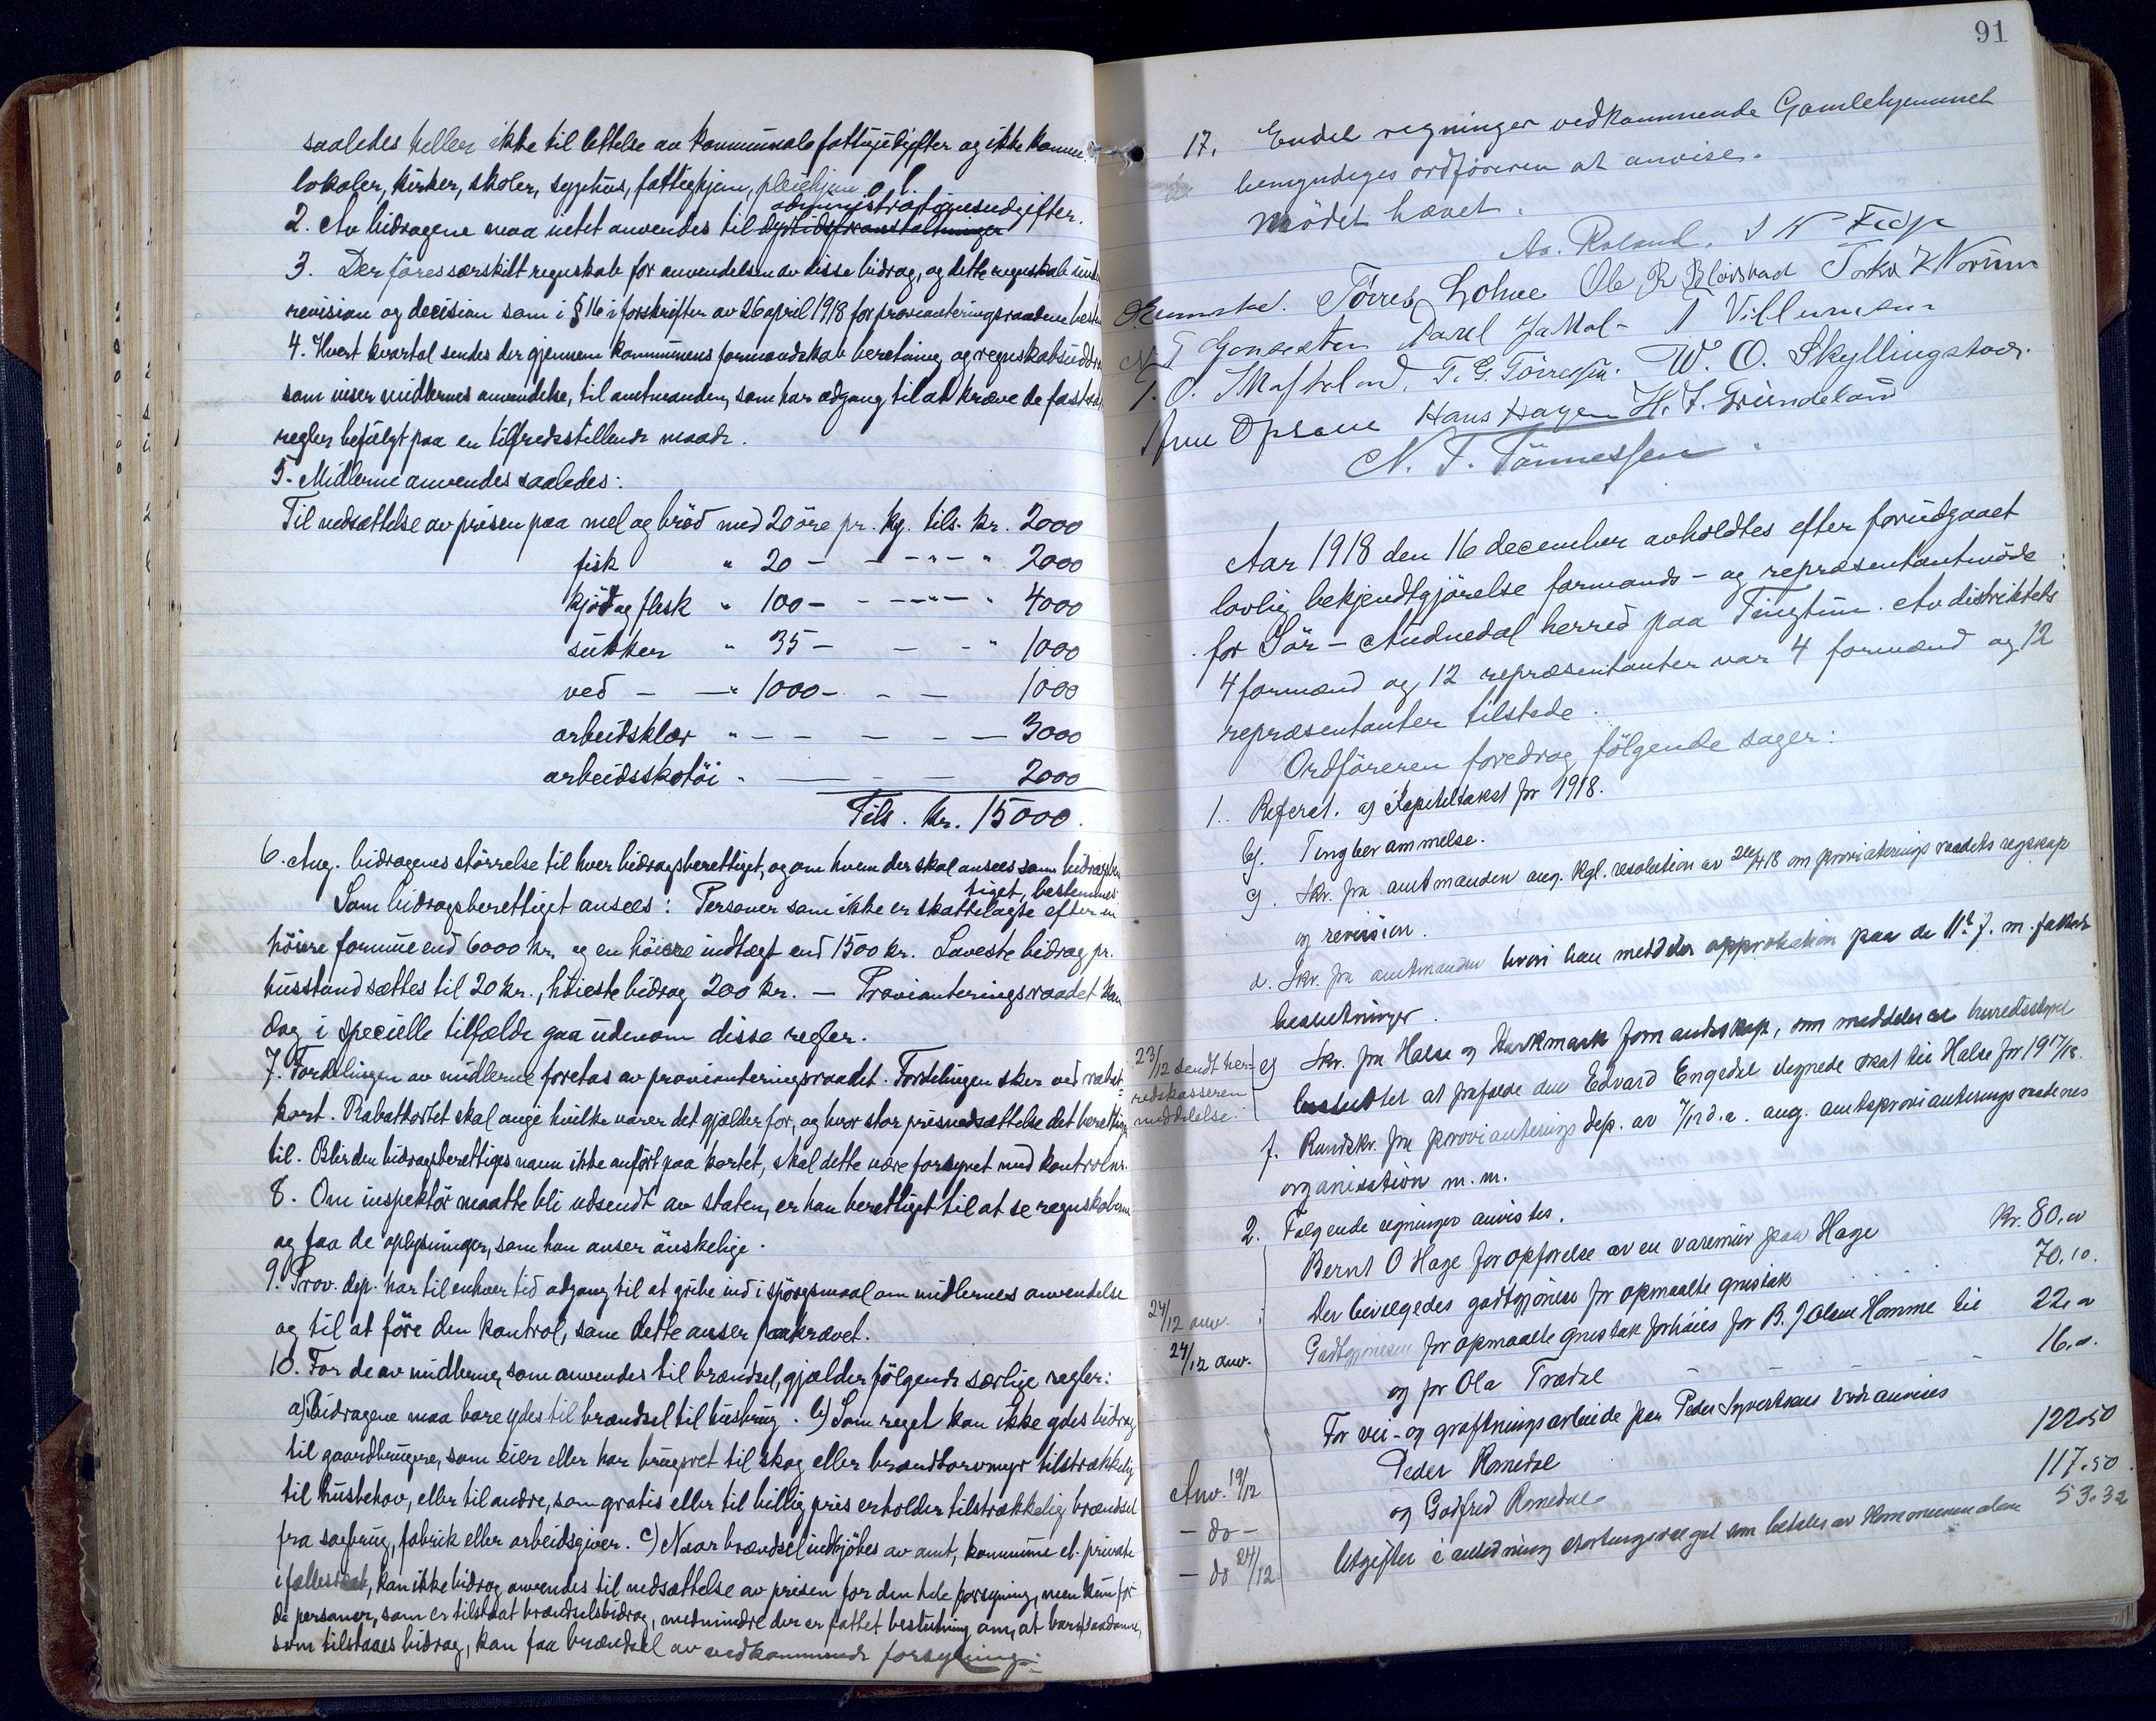 saaledes heller ikke til lettelse av kommunale fattigutgifter og ikke
lokaler, kirker, skoler, sygehus, fattighjem, pleiehjem o. l.
administrationsudgifter.
2. Av bidragene maa intet anvendes til
3. Der föres særskilt regnskab for anvendelsen av disse bidrag, og dette regnskab
revision og decision som i § 16 i forskrifter av 26 april 1918 for provianteringsraadene
4. Hvert kvartal sendes der gjennem kommunens formandskab beretning og regnskabsuddrag
som viser midlernes anvendelse, til amtmanden, som har adgang til at kræve de fastsatte
regler befulgt paa en tilfredsstillende maade.
5. Midlerne anvendes saaledes:
Til nedsættelse av prisen paa mel og bröd med 20 öre pr. kg. tils. kr. 2000
fisk " 20 - - - " - " 2000
kjöt og flesk " 100 - - - " - " 4000
sukker " 35 - - - " 1000
ved - - " 1000 - - - 1000
arbeidsklær " - - - - - 3000
arbeidsskotöi " - - - 2000
Tils. kr. 15000.
6. Ang. bidragenes störrelse til hver bidragsberettiget, og om hvem der skal ansees som bidragsberet
tiget, bestemmes:
Som bidragsberettiget ansees: Personer som ikke er skattelagte efter en
höiere formue end 6000 kr. og en höiere indtægt end 1500 kr. Laveste bidrag pr.
husstand sættes til 20 kr., höieste bidrag 200 kr. — Provianteringsraadet kan
dog i specielle tilfælde gaa udenom disse regler.
7. Fordelingen av midlerne foretas av provianteringsraadet. Fordelingen sker ved rabat-
kort. Rabatkortet skal angi hvilke varer det gjælder for, og hvor stor prisnedsættelse det berettiger
til. Blir den bidragsberettiges navn ikke anfört paa kortet, skal dette være forsynet med kontrolnr.
8. Om inspektör maatte bli utsendt av staten, er han berettiget til at se regnskaberne
og faa de oplysninger, som han anser önskelige.
9. Prov. dep. har til enhver tid adgang til at gribe ind i spörgsmaal om midlernes anvendelse
og til at före den kontrol, som dette anser paakrævet.
10. For de av midlerne, som anvendes til brændsel, gjælder fölgende særlige regler:
a) Bidragene maa bare ydes til brændsel til husbrug. b) Som regel kan ikke ydes bidrag
til gaardbrugere, som eier eller har brugsret til skog eller brændtorvmyr tilstrækkelig
til husbehov, eller til andre, som gratis eller til billig pris erholder tilstrækkelig brændsel
fra sagbrug, fabrik eller arbeidsgiver. c) Naar brændsel indkjöbes av amt, kommune el. private
i fællesskab, kan ikke bidrag anvendes til nedsættelse av prisen for den hele forsyning, men kun for
de personer, som er tilstaat brændselsbidrag, medmindre der er fattet beslutning om, at bare saadanne,
som tilstaaes bidrag, kan faa brændsel av vedkommende forsyning.
91
17. Endel regninger vedkommende Gamlehjemmet
bemyndiges ordföreren at anvise.
Mödet hævet.
Aa. Roland.
Törres Lohne Ole R
T. G. Törresen. W. O. Skyllingstad.
Hans Hagen H. T. Gründeland
N. T. Tönnessen
Aar 1918 den 16 december avholdtes efter forudgaaet
lovlig bekjendtgjörelse formands- og repræsentantmöde
for Sör-Audnedal herred paa Tingtun. Av distriktets
4 formænd og 12 repræsentanter var 4 formænd og 12
repræsentanter tilstede.
Ordföreren foredrog fölgende sager:
1. Referat. a) Kapiteltakst for 1918.
b). Tingberammelse.
c). Skr. fra amtmanden ang. kgl. resolution av 26/4 18 om provianteringsraadets regskap
og revision.
d. Skr. fra amtmanden hvori han meddeler approbation paa de 11te f. m. fattede
beslutninger.
23/12 sendt her-
redskasseren
meddelelse.
e) Skr. fra Halse og Harkmark formandskap, om meddeler at herredsstyret
besluttet at frafalde den Edvard Engedal ilignede skat til Halse for 1917/18.
f. Rundskr. fra provianterings dep. av 7/12 d.a. ang. amtsprovianteringsraadenes
organisation m. m.
2. Følgende regninger anvistes.
Bernt O Hage for opførelse av en varemur paa Hage Kr. 80.00
24/12 anv. Der bevilgedes godtgjörelse for opmaalte grustak 70.10.
24/12 anv. Godtgjörelsen for opmaalte grustak forhöies for B. J Olsen Homme til 22.00
og for Ola Trædal 16.00
For vei- og grøftningsarbeide paa Peder Syvertsens vedk. anvises
Anv. 19/12 Peder Romedal 122.50
- do - og Godfred Romedal 117.50
- do 24/12 Utgifter i anledning stortingsvalget som betales av kommunen alene 53.32